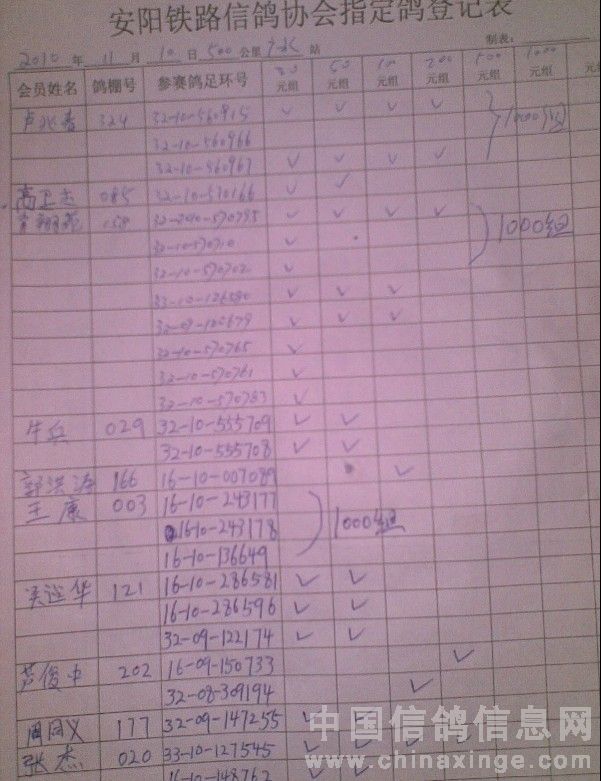 安阳铁路信鸽协会指定鸽登记表
2010 年 11 月 10 日 500 公里 站 制表:
会员姓名 鸽棚号 参赛鸽足环号 20元组 50元组 100元组 200元组 500元组 1000元组 元组
324 32-10-560915 ✓ ✓ ✓ ✓ 1000组
32-10-560966
32-10-560967 ✓ ✓ ✓ ✓
085 32-10-570166 ✓ ✓
058 ✓ ✓ ✓ ✓ 1000组
32-10-570710 ✓
32-10-570702 ✓
✓ ✓ ✓
✓ ✓ ✓
32-10-570765 ✓
32-10-570761 ✓
32-10-570783 ✓
牛兵 029 32-10-555709 ✓ ✓
32-10-555708 ✓ ✓
郭洪涛 166 16-10-007089 ✓
王康 003 16-10-243177 1000组
16-10-243178
16-10-136649
121 16-10-286581 ✓ ✓
16-10-286596 ✓ ✓
32-09-122174 ✓ ✓
芦俊中 202 16-09-150733 ✓
32-08-309194 ✓
周同义 177 32-09-147255 ✓
张杰 020 33-10-127545 ✓ ✓ ✓ ✓
16-10-148762 ✓ ✓
中国信鸽信息网
www.chinaxinge.com